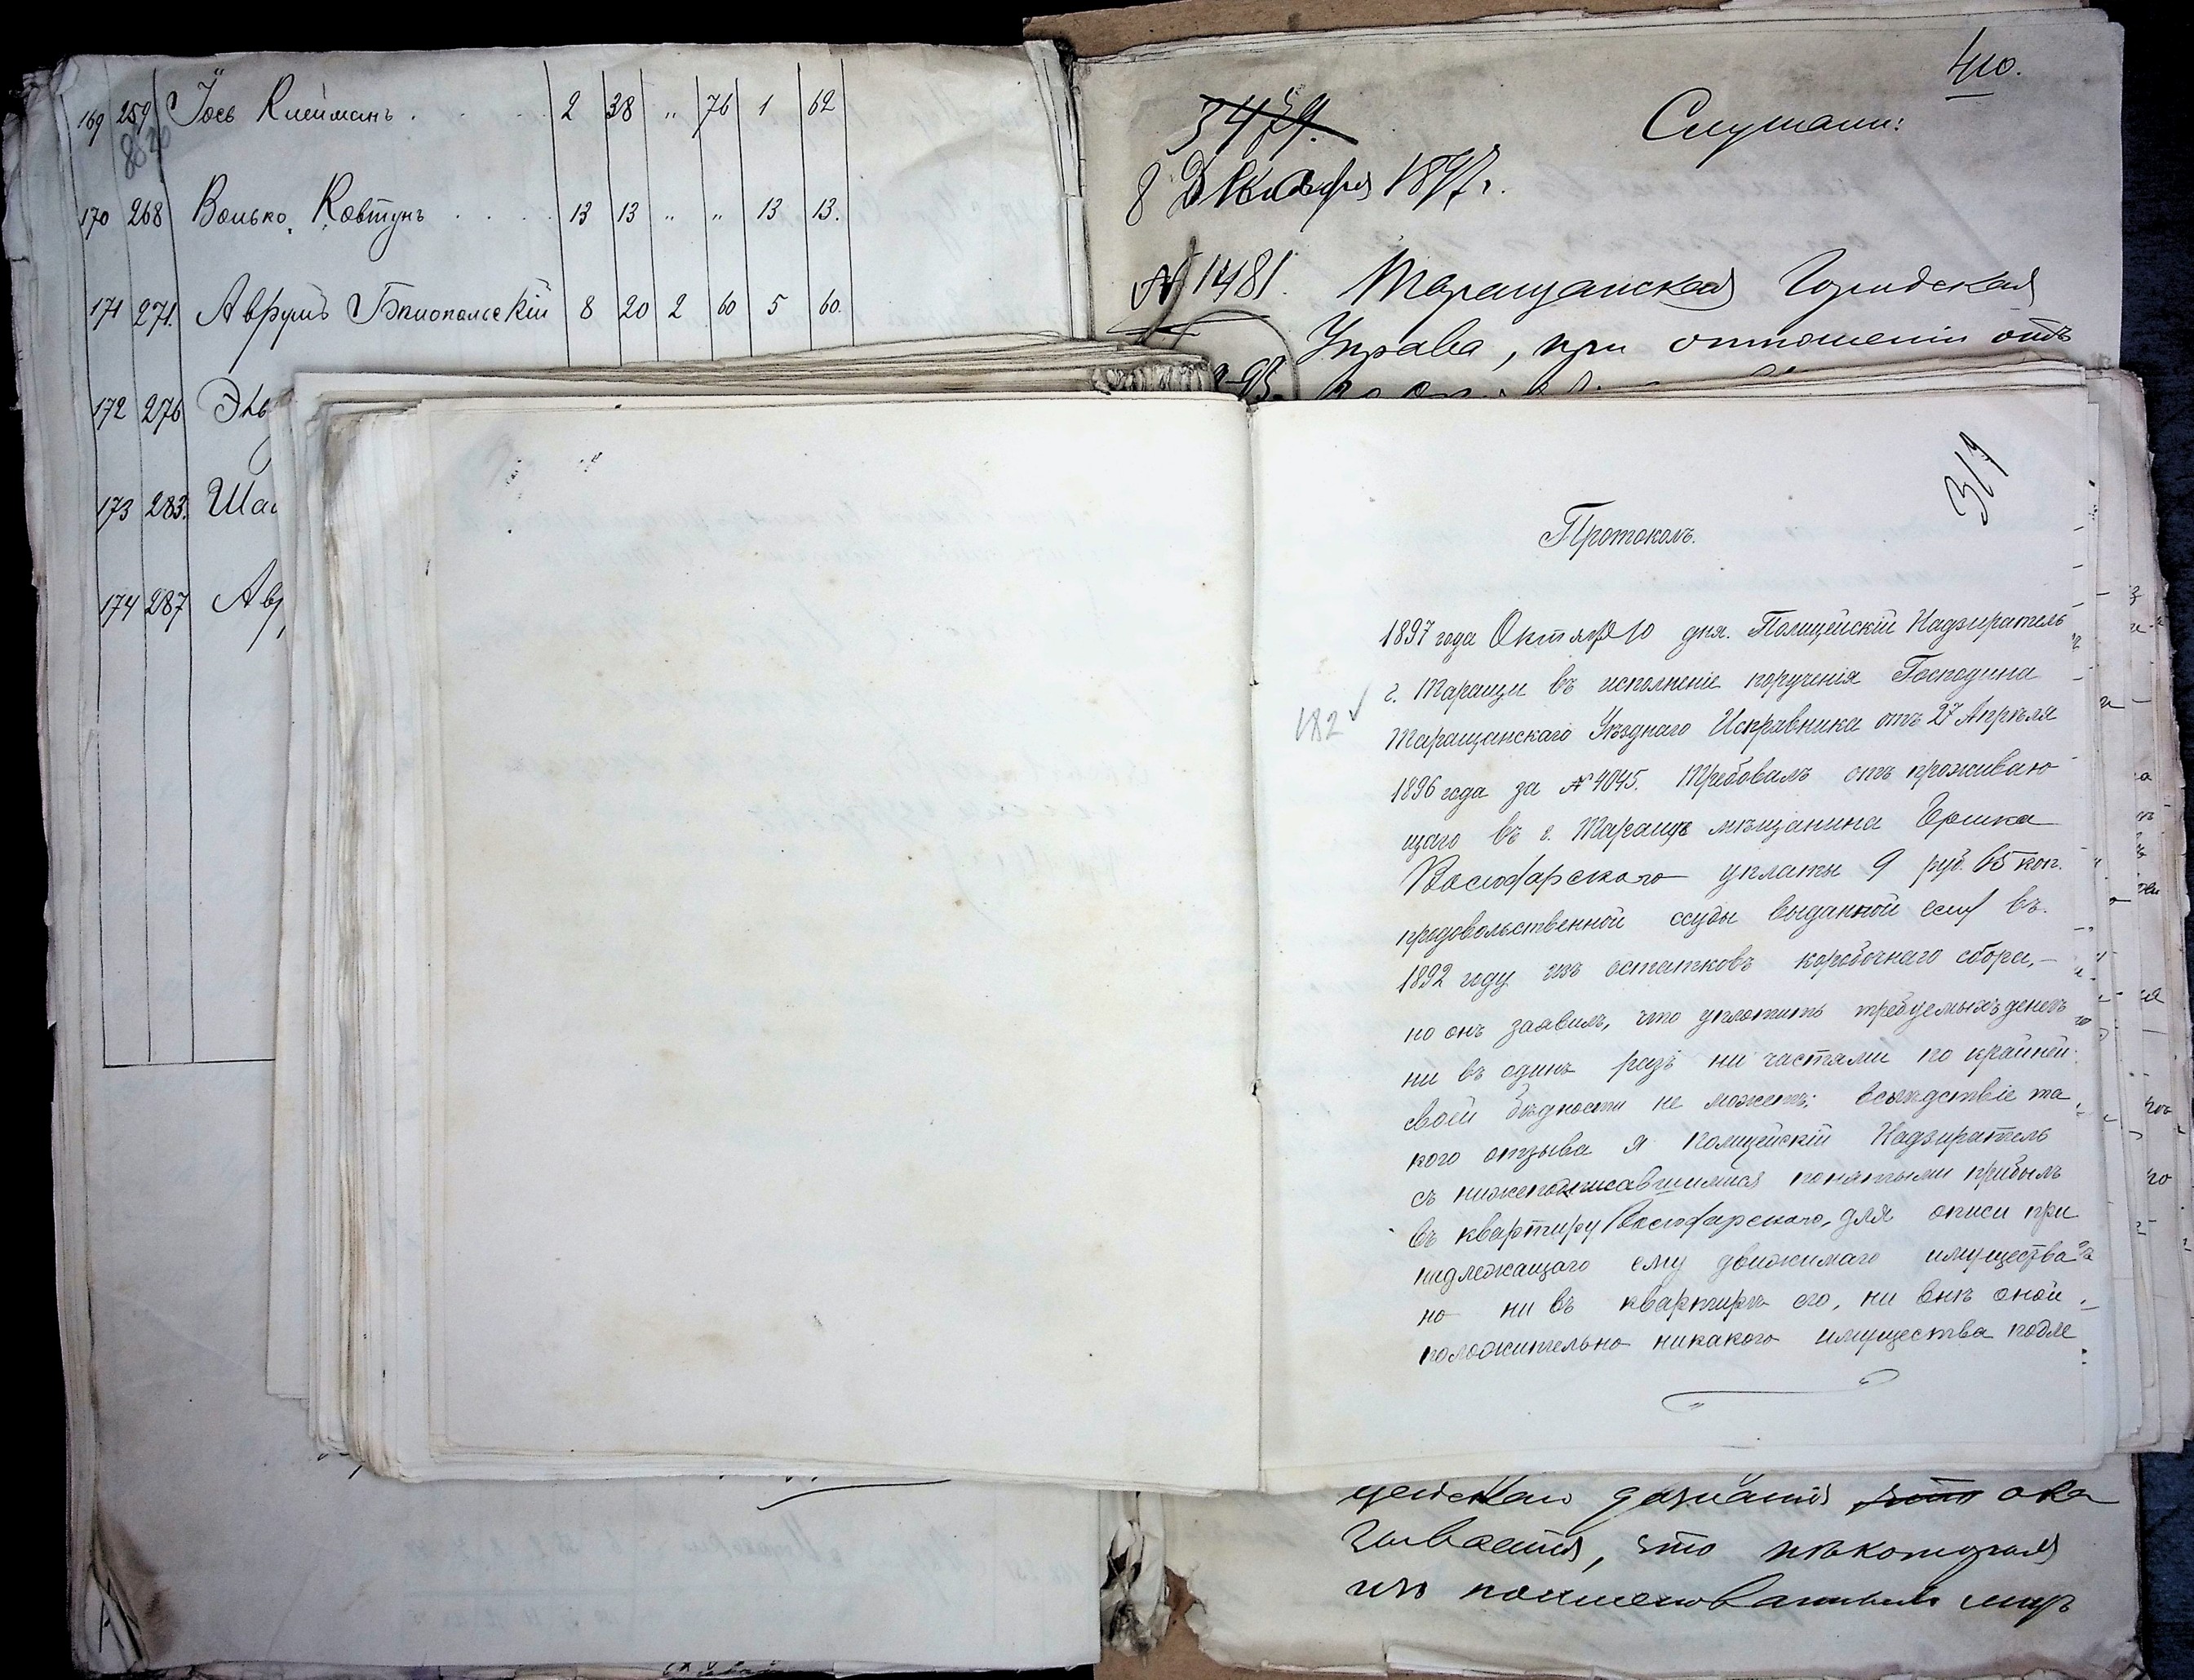 169 259 Іось Клейманъ . . . . 2 38 „ 76 1 62
170 268 Волько Ковтунъ . . . . 13 13 „ „ 13 13.
171 271. Аврумъ Бѣлопольскій 8 20 2 60 5 60.
172 276
173 283.
174 287
410.
Слушали:
8 Декабря 1897 г.
№ 11481. Таращанская Городская
Управа, при отношеніи отъ
319
Протоколъ.
1897 года Октября 10 дня. Полицейскій Надзиратель
г. Таращи въ исполненіе порученія Господина
182
Таращанскаго Уѣзднаго Исправника отъ 27 Апрѣля
1896 года за № 4045. Требовалъ отъ проживаю
щаго въ г. Таращѣ мѣщанина Ершка
уплаты 9 руб. 65 коп.
продовольственной ссуды выданной ему въ
1892 году изъ остатковъ коробочнаго сбора, —
но онъ заявилъ, что уплатить требуемыхъ денегъ
ни въ одинъ разъ ни частями по крайней
своей бѣдности не можетъ; вслѣдствіе та
кого отзыва я Полицейскій Надзиратель
съ нижеподписавшимися понятыми прибылъ
въ квартиру для описи при
надлежащаго ему движимаго имущества
но ни въ квартирѣ его, ни внѣ оной
положительно никакого имущества подле
цейскаго дознанія что ока
зывается, что нѣкоторыя
изъ поименованныхъ лицъ